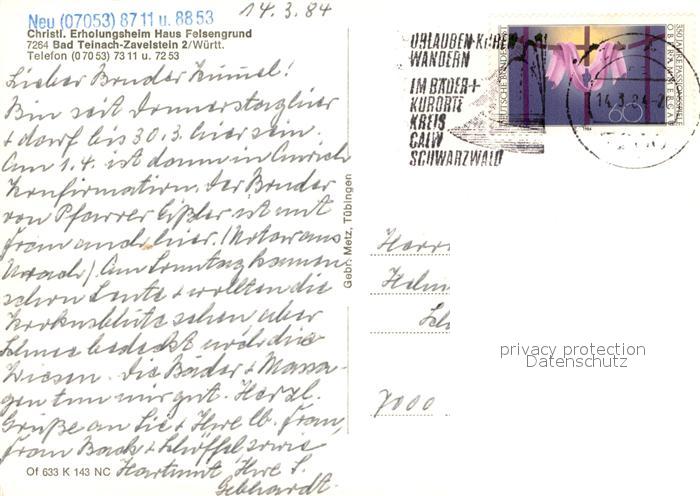 Neu (07053) 8711 u. 8853
14.3.84
Christl. Erholungsheim Haus Felsengrund
7264 Bad Teinach-Zavelstein 2/Württ.
Telefon (07053) 7311 u. 7253
Lieber Bruder Kimmel!
Bin seit Donnerstag hier
+ darf bis 30.3. hier sein.
Am 1.4. ist dann in Aurich
Konfirmation. Der Bruder
von Pfarrer Eißler ist mit
Frau auch hier. (Notar aus
Urach). Am Sonntag kamen
schon Leute + wollten die
Krokusblüte sehen aber
Schnee bedeckt die
Wiesen. Die Bäder + Massa-
gen tun mir gut. Herzl.
Grüße an Sie + Ihre lb. Frau,
Frau Back + Schöffel sowie
Hartmut Ihre S.
Gebhardt.
Of 633 K 143 NC
Gebr. Metz, Tübingen
URLAUBEN-KUREN
WANDERN
IM BÄDER+
KURORTE
KREIS
CALW
SCHWARZWALD
DEUTSCHE BUNDESPOST
60
14.3.84
Herrn
7000
privacy protection
Datenschutz